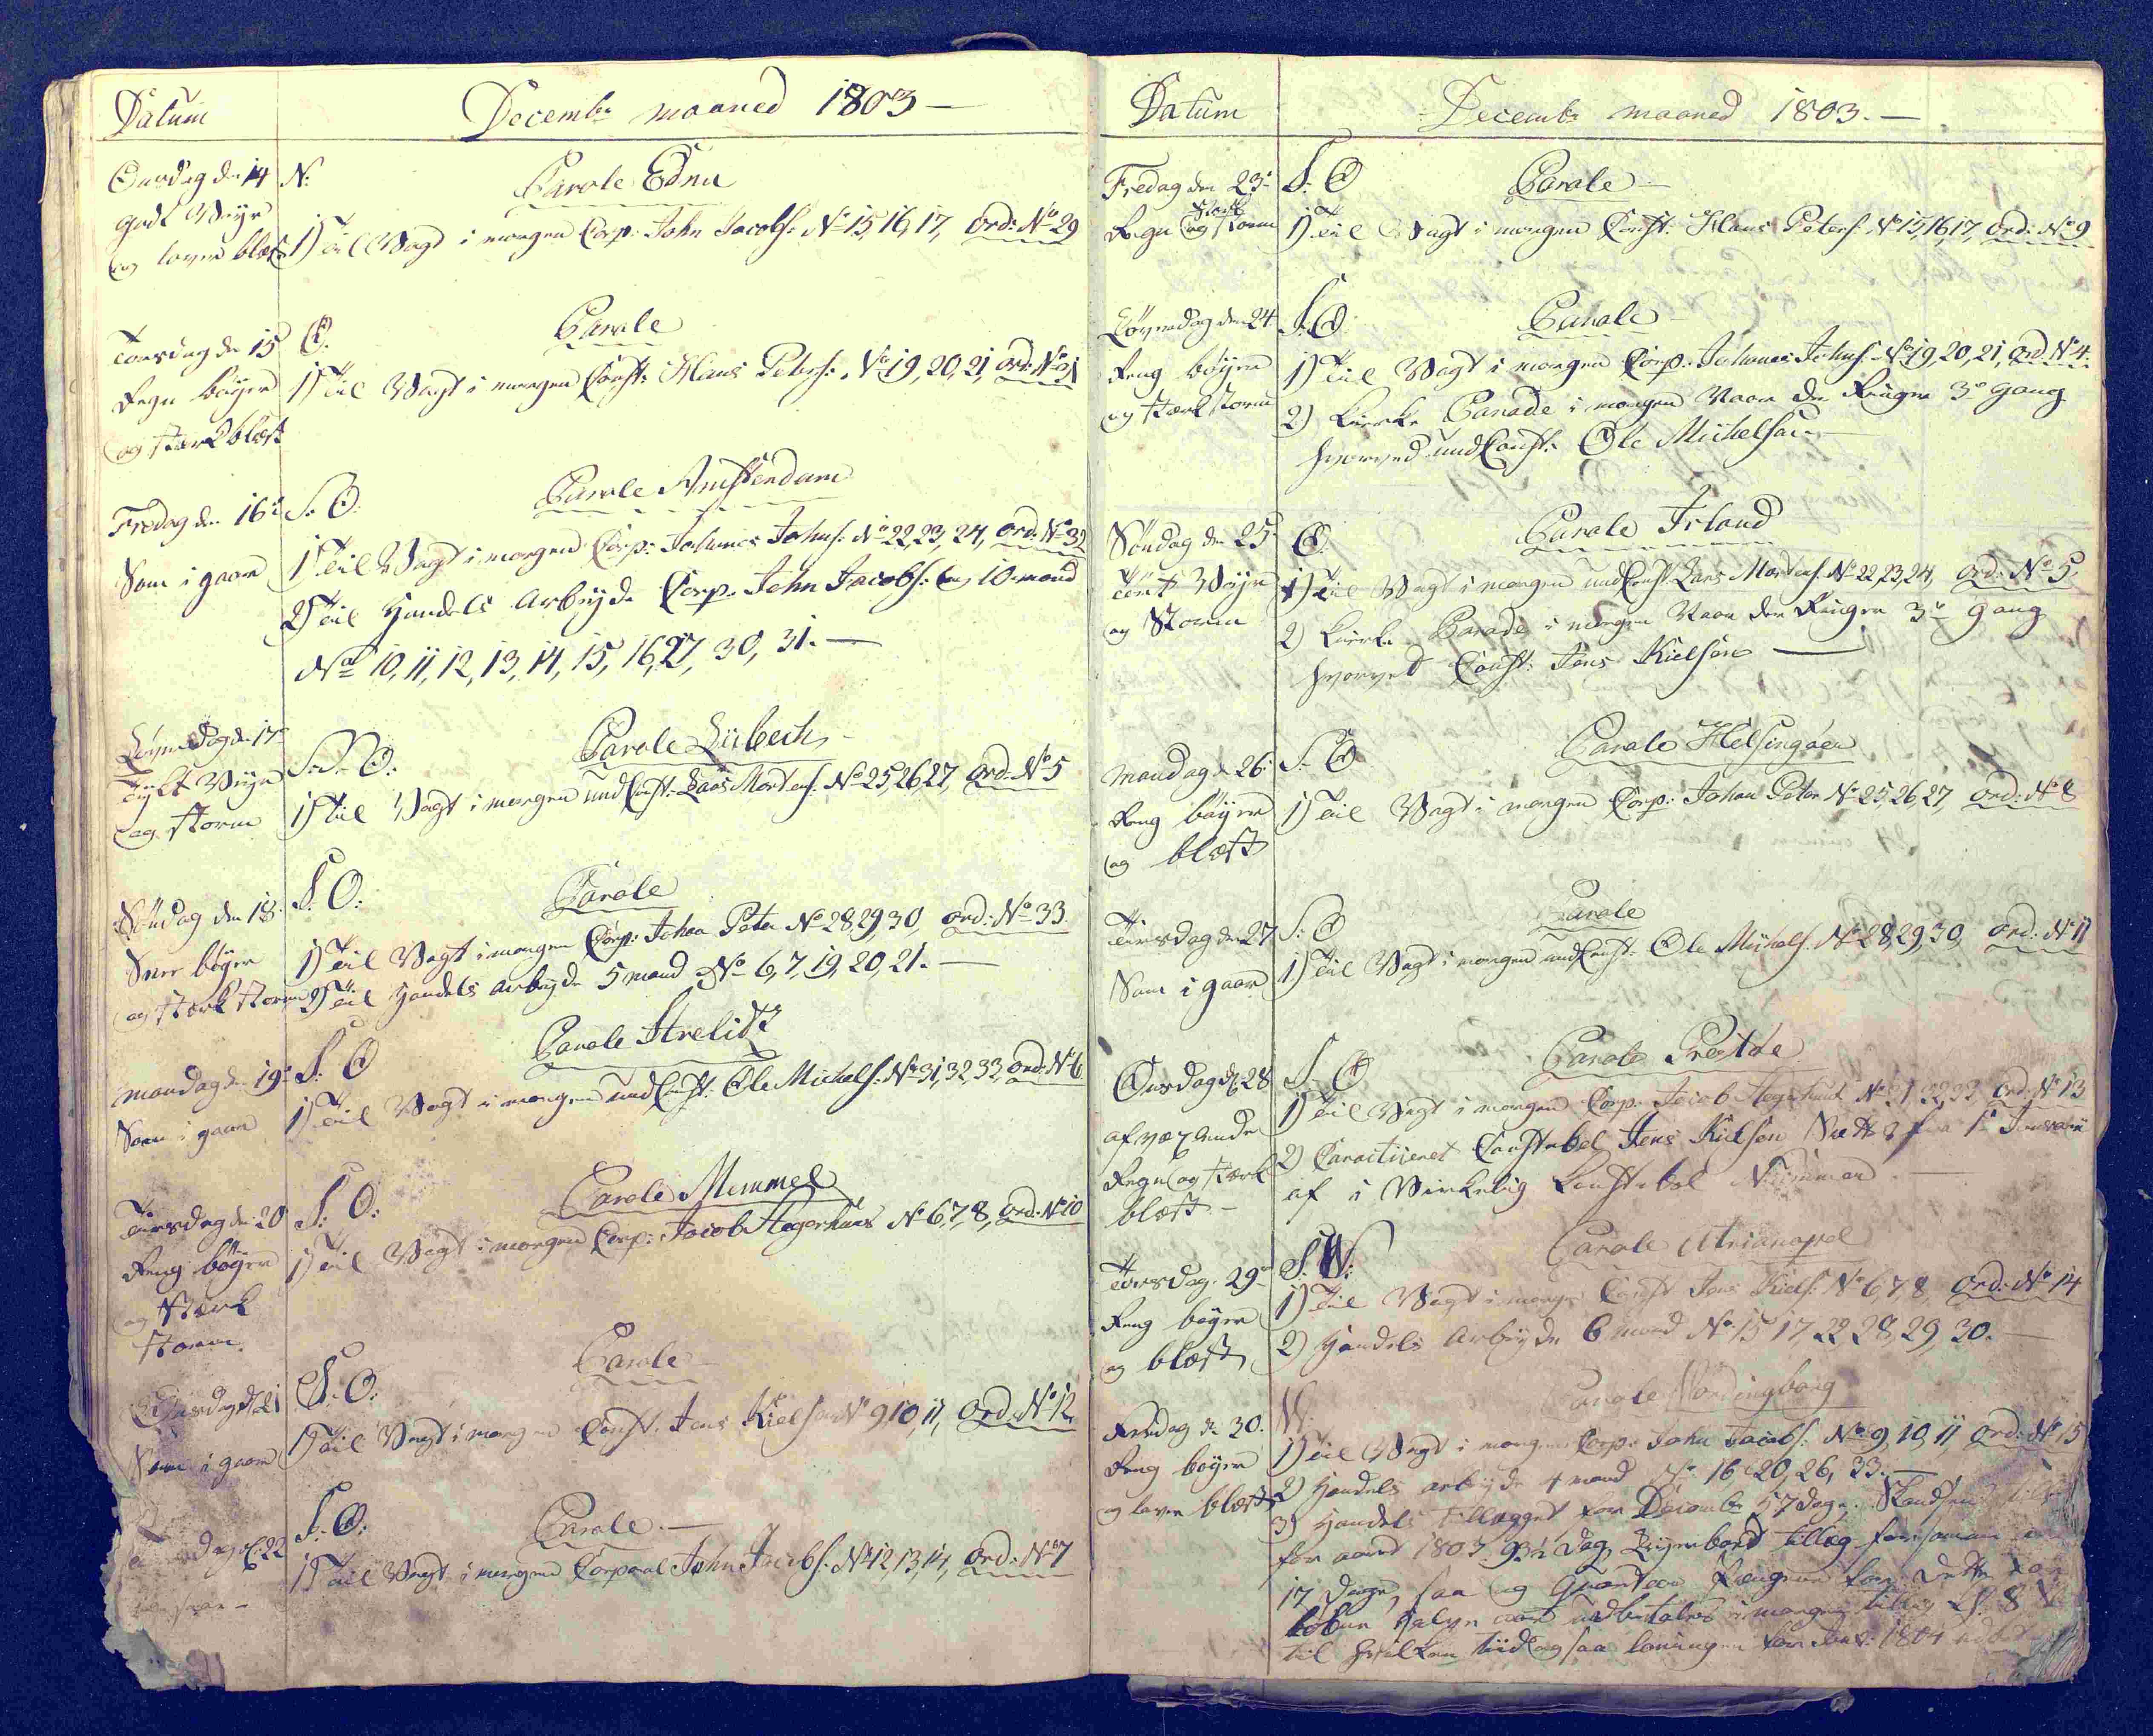 Datum
Decembr maaned 1803 —
Onsdag den 14
godt Veyr
og laven blæst
N:
Parole Edna
1) Til Vagt i morgen Corp: John Jacobs: No 15, 16, 17, Ord: No 29
Torsdag den 15
Regn bøyer
og stærk blæst
O.
Parole
1) Til Vagt i morgen Const: Hans Peters: No 19, 20, 21, Ord: No 31
Fredag den 16
Som i gaar
S. O.
Parole Amsterdam
1) Til Vagt i morgen Corp: Johanes Johns: No 22, 23, 24, Ord: No 32
2) Til Handels Arbeyde Corp. John Jacobs: og 10 mand
No 10, 11, 12, 13, 14, 15, 16, 27, 30, 31. —
Løverdag d. 17
Tykt Veyr
og storm
S. S. O:
Parole Lübech
1) Til Vagt i morgen und Const: Laas Mortens: No 25, 26, 27 Ord: No 5
Søndag den 18.
Snee bøyer
og stærk storm
S. O:
Parole
1) Til Vagt i morgen Corp: Johan Peter No 28, 29, 30, Ord: No 33
2) Til Handels Arbeyde 5 mand No 6, 7, 19, 20, 21. —
Mandag d. 19
Som i gaar
S: O
Parole Strelitz
1) Til Vagt i morgen und Const: Ole Michels: No 31, 32, 33, Ord: No 6
Tirsdag den 20
Reng bøyer
og Stærk
storm.
S: O:
Parole Memmel
1) Til Vagt i morgen Corp: Jacob Høgerhuus No 6, 7, 8, Ord: No 10
Onsdag d. 21
Som i gaar
S. O:
Parole
1) Til Vagt i morgen Const. Jens Kielsen No 9, 10, 11, Ord: No 12
d. 22
S. O:
Parole. —
1) Til Vagt i morgen Corporal John Jacobs: No 12, 13, 14, Ord: No 7
Datum
Decembr maaned 1803. —
Fredag den 23
Regn og Stærk storm
S: O
Parole —
1) Til Vagt i morgen Const: Hans Peters: No 15, 16, 17, Ord: No 9
Løverdag den 24
Reng bøyer
og stærk storm
S. O.
Parole
1) Til Vagt i morgen Corp: Johanes Johns: No 19, 20, 21, Ord. No 4.
2) Kirke Parade i morgen Naar der Ringer 3de Gang
hvorved und Const: Ole Michelsen —
Søndag den 25
Veyr
og Storm
O.
Parole Island
1) Til Vagt i morgen und Const: Laas Mortens: No 22, 23, 24, Ord: No 5
2) Kirke Parade i morgen Naar der Ringer 3de Gang
hvorved Const: Jens Kielsen —
Mandag d. 26
Reng bøyer
og blæst
S. O
Parole Helsingøer
1) Til Vagt i morgen Corp: Johan Peter No 25, 26, 27, Ord: No 8
Tirsdag den 27
Som i gaar
S: O
Parole
1) Til Vagt i morgen und Const: Ole Michels: No 28, 29, 30, Ord: No 11
Onsdag d. 28
afvexlende
Regn og stærk
blæst —
S. O
Parole
1) Til Vagt i morgen Corp: Jacob No 31, 32, 33 Ord: No 13
2) Caractiseret Constabel Jens Kielsen 1te Januarii
af i Virkelig Constabel Nummer —
Torsdag. 29
Reng bøyer
og blæst
S. W:
Parole
1) Til Vagt i morgen Const Jens Kiels: No 6, 7, 8, Ord: No 14
2) Handels Arbeyde 6 mand No 15 17 22 28, 29, 30. —
Fredag d. 30.
Reng bøyer
og laven blæst
N:
Parole Vordingborg
1) Til Vagt i morgen Corp: John Jacobs: No 9, 10, 11, Ord: No 15
2) Handels arbeyde 4 mand No 16, 20, 26, 33. —
3) Handels Tillægget for Decembr 57 dage.
for aaret 1803 Dag, tillæg
17 dage, saa og for dette
halve aar udbetales i morgen Kl. 8
til hvilken tiid ogsaa løningen for Janr: 1804